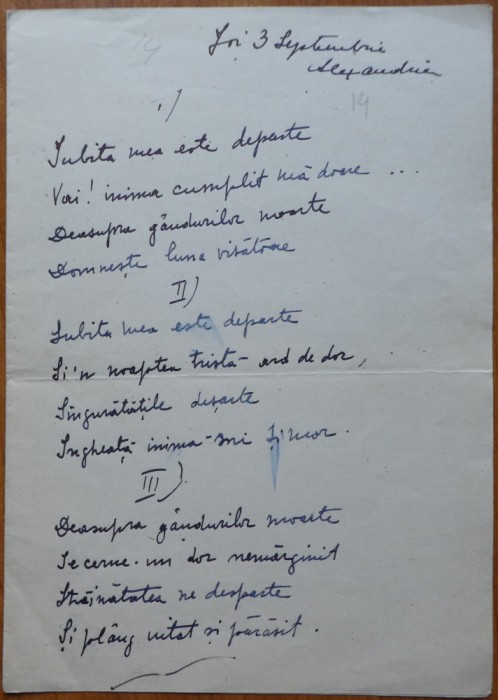 Joi 3 Septembrie
Alexandria
14
14
I)
Iubita mea este departe
Vai! inima cumplit mă doare ...
Deasupra gândurilor moarte
Domnește luna visătoare
II)
Iubita mea este departe
Și'n noaptea tristă ard de dor,
Singurătățile deșarte
Îngheață inima-mi și mor.
III)
Deasupra gândurilor moarte
Se cerne-un dor nemărginit
Străinătatea ne desparte
Și plâng uitat și părăsit.